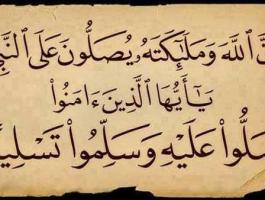 ٱللَّهَ وَمَلَٰٓئِكَتَهُۥ يُصَلُّونَ عَلَى ٱلنَّبِ
يَٰٓأَيُّهَا ٱلَّذِينَ ءَامَنُوا۟
لُّوا۟ عَلَيْهِ وَسَلِّمُوا۟ تَسْلِي